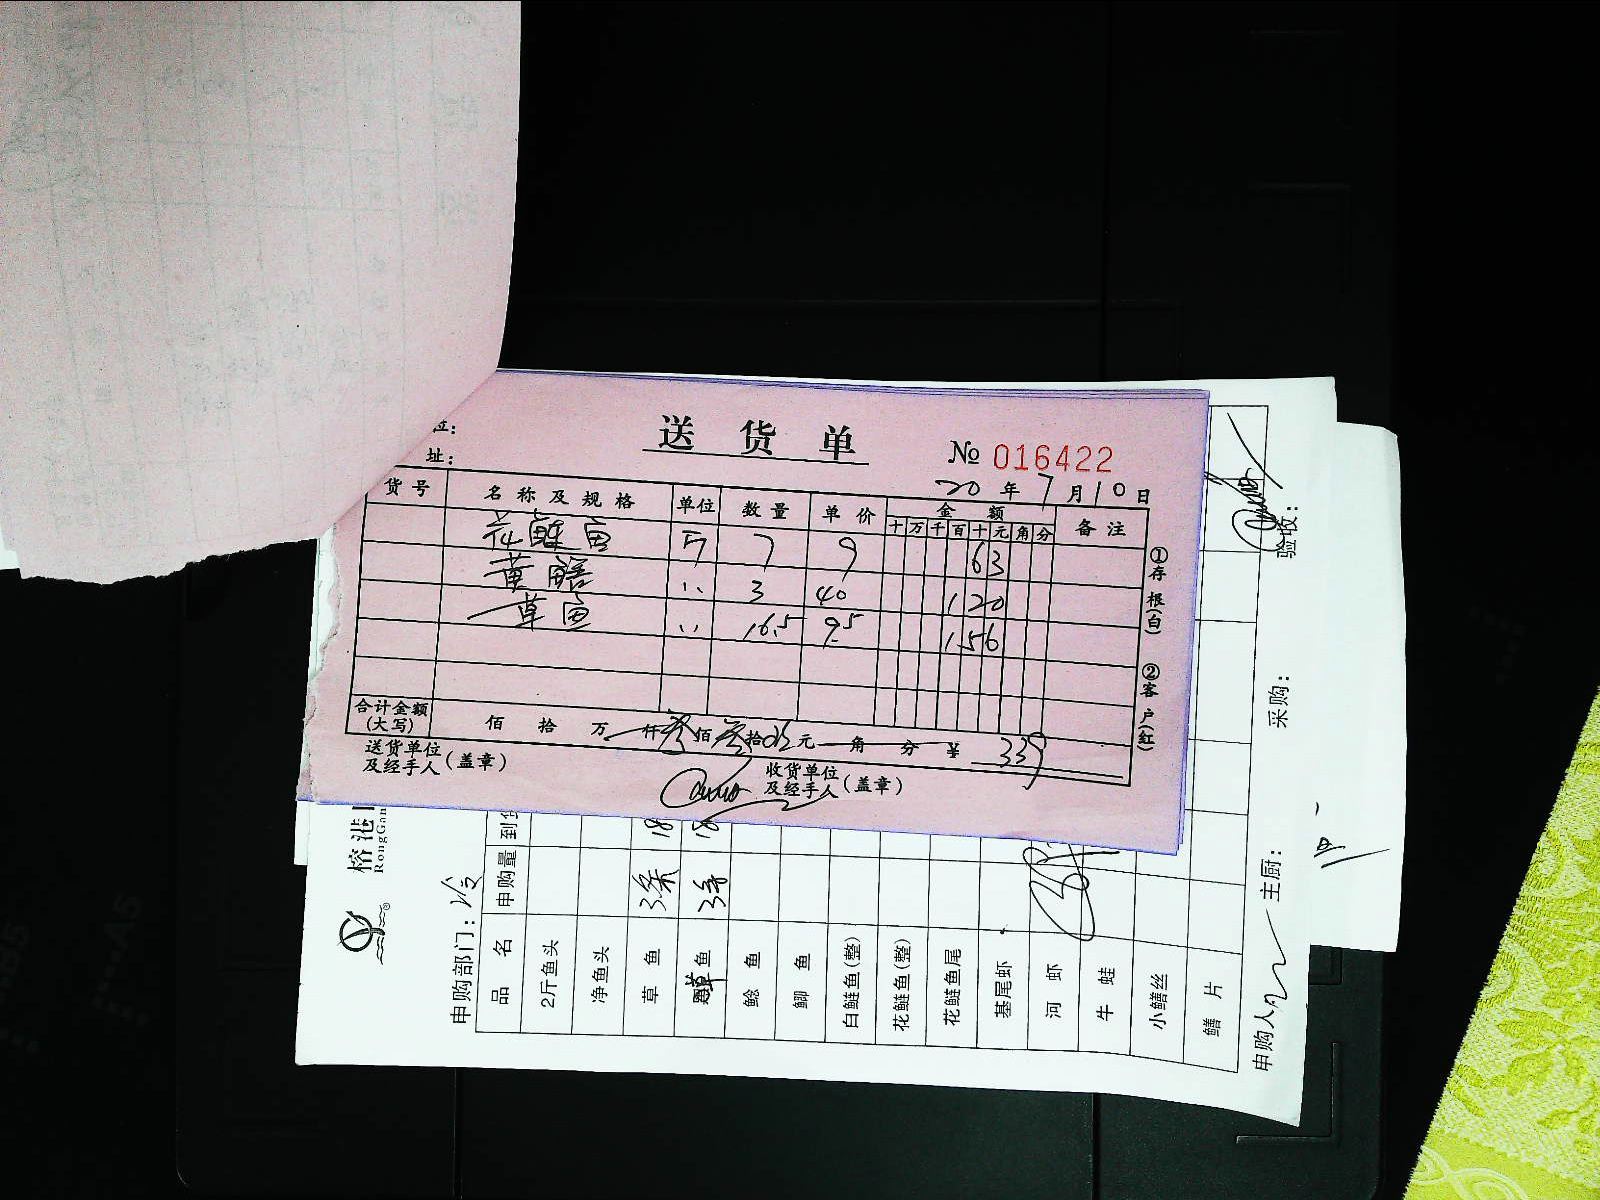 位：
址：
送货单
№ 016422
20年7月10日
货号 名称及规格 单位 数量 单价 金额 备注
十万千百十元角分
花鲢鱼 斤 7 9 63
黄鳝 〃 3 40 120
草鱼 〃 16.5 9.5 156
合计金额(大写) 佰拾万仟叁佰叁拾玖元角分 ¥ 339
送货单位及经手人(盖章)
收货单位及经手人(盖章)
①存根(白)
②客户(红)
榕港
RongGan
®
申购部门：
品名 申购量 到
2斤鱼头
净鱼头
草鱼 3条 18
草鱼 3条 18
鲶鱼
鲫鱼
白鲢鱼(整)
花鲢鱼(整)
花鲢鱼尾
基尾虾
河虾
牛蛙
小鳝丝
鳝片
申购人
主厨：
采购：
验收：